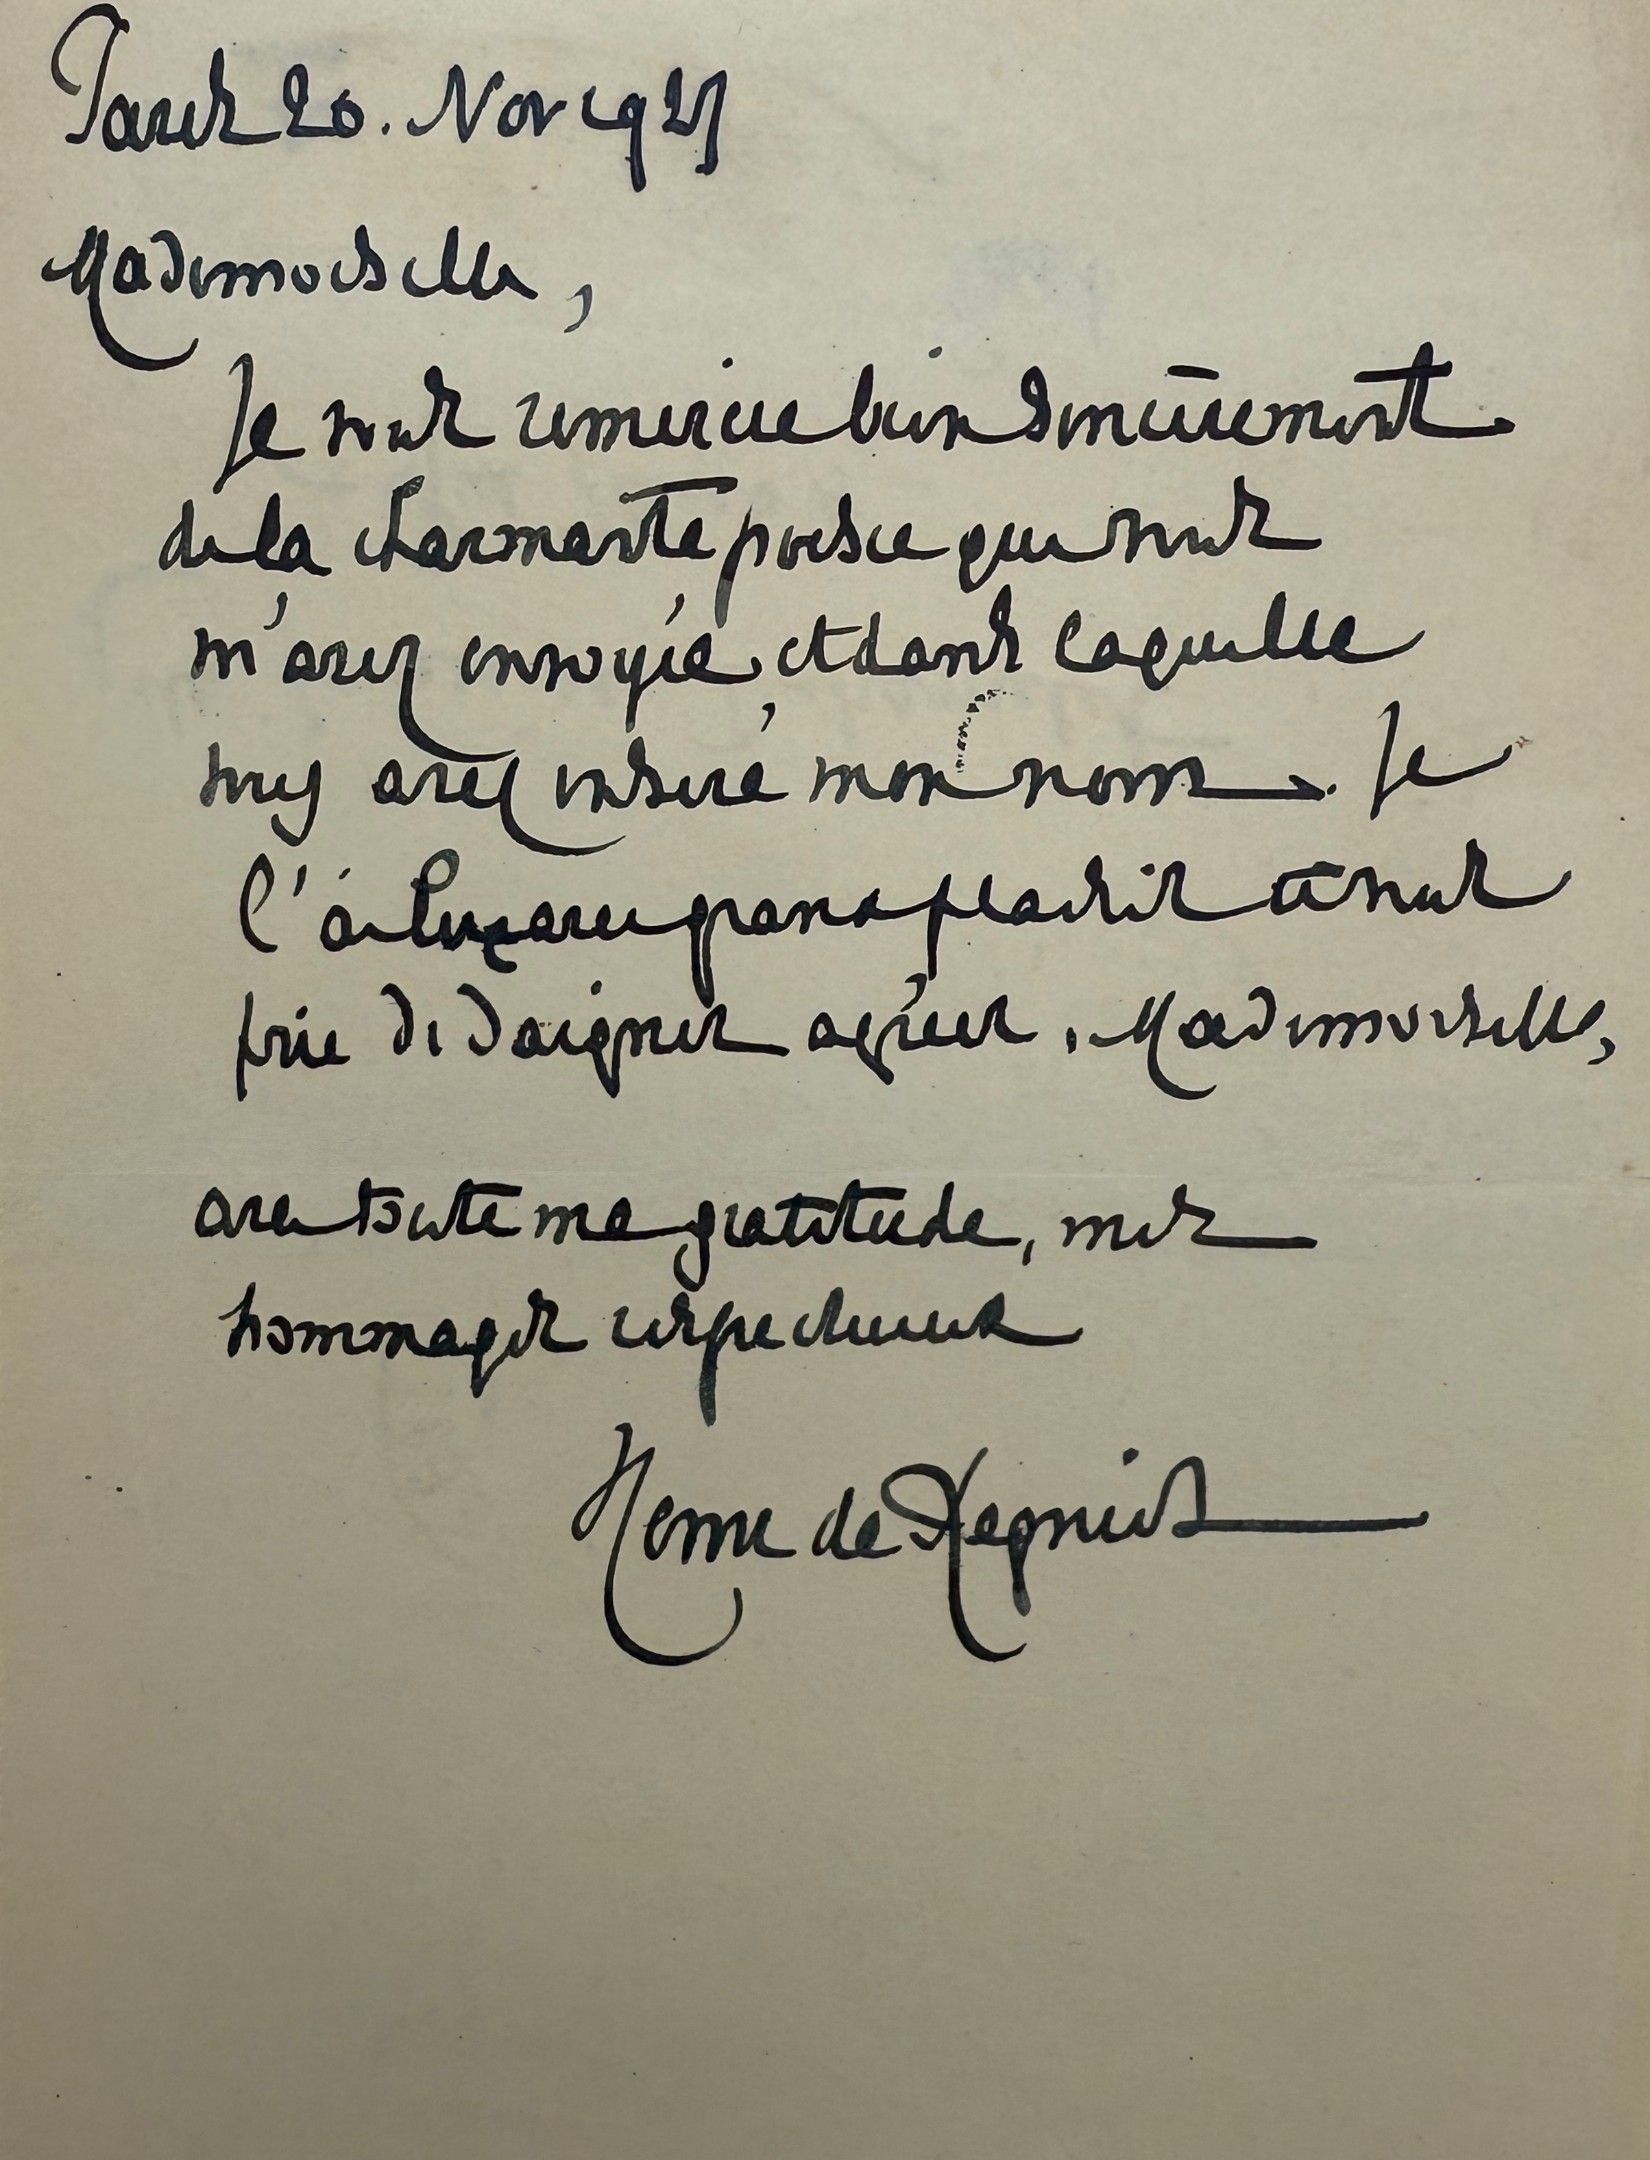 Paris 20. Nov 1925
Mademoiselle,
Je vous remercie bien sincèrement
de la charmante poésie que vous
m'avez envoyée, et dans laquelle
vous avez inséré mon nom. Je
l'ai lue avec grand plaisir et vous
prie de daigner agréer, Mademoiselle,
avec toute ma gratitude, mes
hommages respectueux
Henri de Regnier